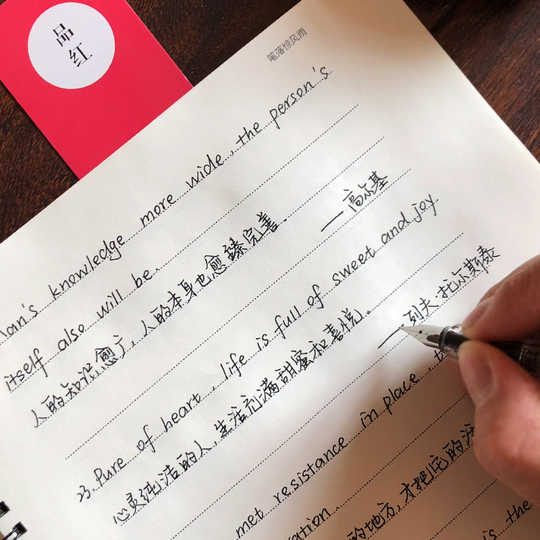 品红
笔落惊风雨
man's knowledge more wide, the person's
itself also will be.
人的知识愈广，人的本身也愈臻完善。
——高尔基
23. Pure of heart, life is full of sweet and joy.
心灵纯洁的人，生活充满甜蜜和喜悦。
——列夫·托尔斯泰
met resistance in place,
的地方，才把它的
is the